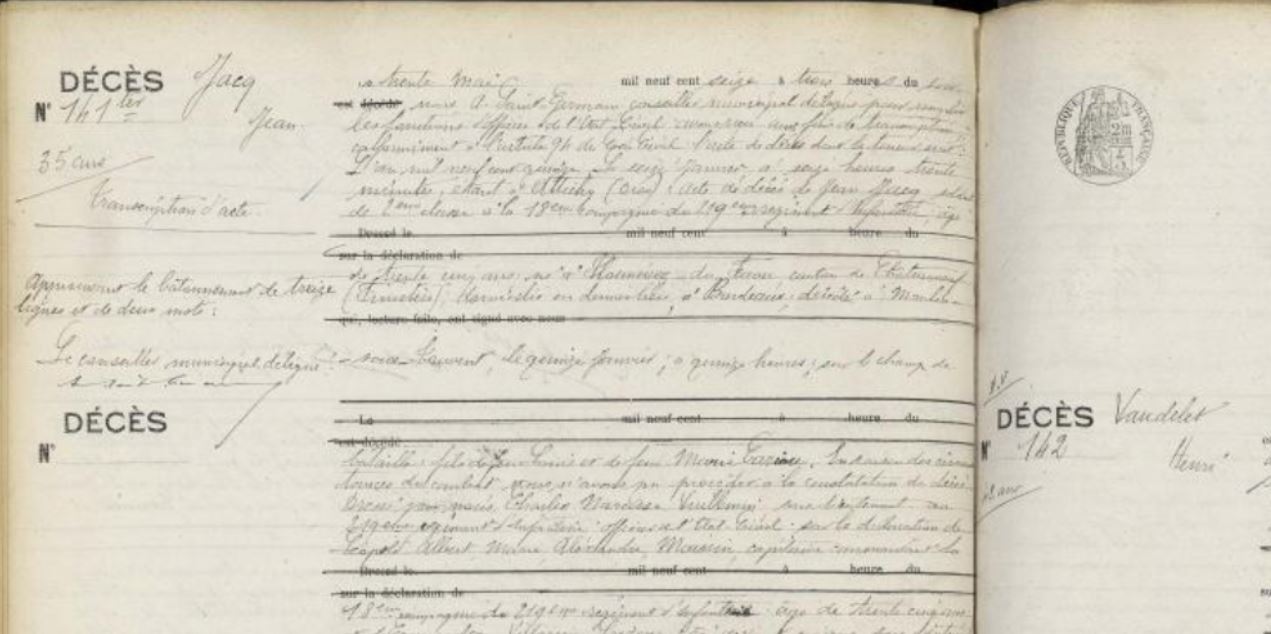 DÉCÈS Jacq
N° 141 ter
Jean
35 ans
Transcription d'acte
Approuvant le bâtonnement de treize
lignes et de deux mots :
Le conseiller municipal délégué
Le trente Mai mil neuf cent seize à trois heures du soir
est décédé nous A. Saint-Germain conseiller municipal délégué pour remplir
les fonctions d'officier de l'Etat Civil avons reçu aux fins de transcription
conformément à l'article 94 du Code Civil l'acte de décès dont la teneur suit :
L'an mil neuf cent quinze, le seize Janvier à seize heures trente
minutes, étant à Attichy (Oise) : acte de décès de Jean Jacq, soldat
de 2eme classe à la 18eme compagnie du 219eme regiment Infanterie, âgé
Dressé le mil neuf cent à heure du
sur la déclaration de
de trente cinq ans, né à Plounévez du Faou canton de Chateauneuf
(Finistère), domicilié en dernier lieu à Bordeaux, décédé à Moulin
qui, lecture faite, ont signé avec nous
sous-Touvent, le quinze Janvier, à quinze heures, sur le champ de
DÉCÈS
N°
Le mil neuf cent à heure du
est décédé
bataille : fils de feu Louis et de feu Marie
du combat nous n'avons pu procéder à la constatation du décès
Dressé par nous, Charles Narcisse Vuillemin sous-lieutenant au
219eme regiment d'Infanterie officier de l'Etat Civil sur la déclaration de
Léopold Albert Marie Alexandre capitaine commandant la
Dressé le mil neuf cent à heure du
sur la déclaration de
18eme compagnie du 219eme regiment d'Infanterie âgé de trente cinq ans
RÉPUBLIQUE FRANÇAISE
DÉCÈS Vaudelet
N° 142
Henri